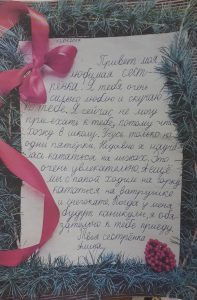 Привет моя
любимая сест-
рёнка! Я тебя очень
сильно люблю и скучаю
по тебе. Я сейчас не могу
приехать к тебе, потому что
хожу в школу. Учусь только на
одни пятёрки. Недавно я научи-
лась кататься на лыжах. Это
очень увлекательно. А ещё
мы с папой ходим на горку
кататься на ватрушке
и снегокате. Когда у меня
будут каникулы, я обя-
зательно к тебе приеду.
Твоя сестрёнка